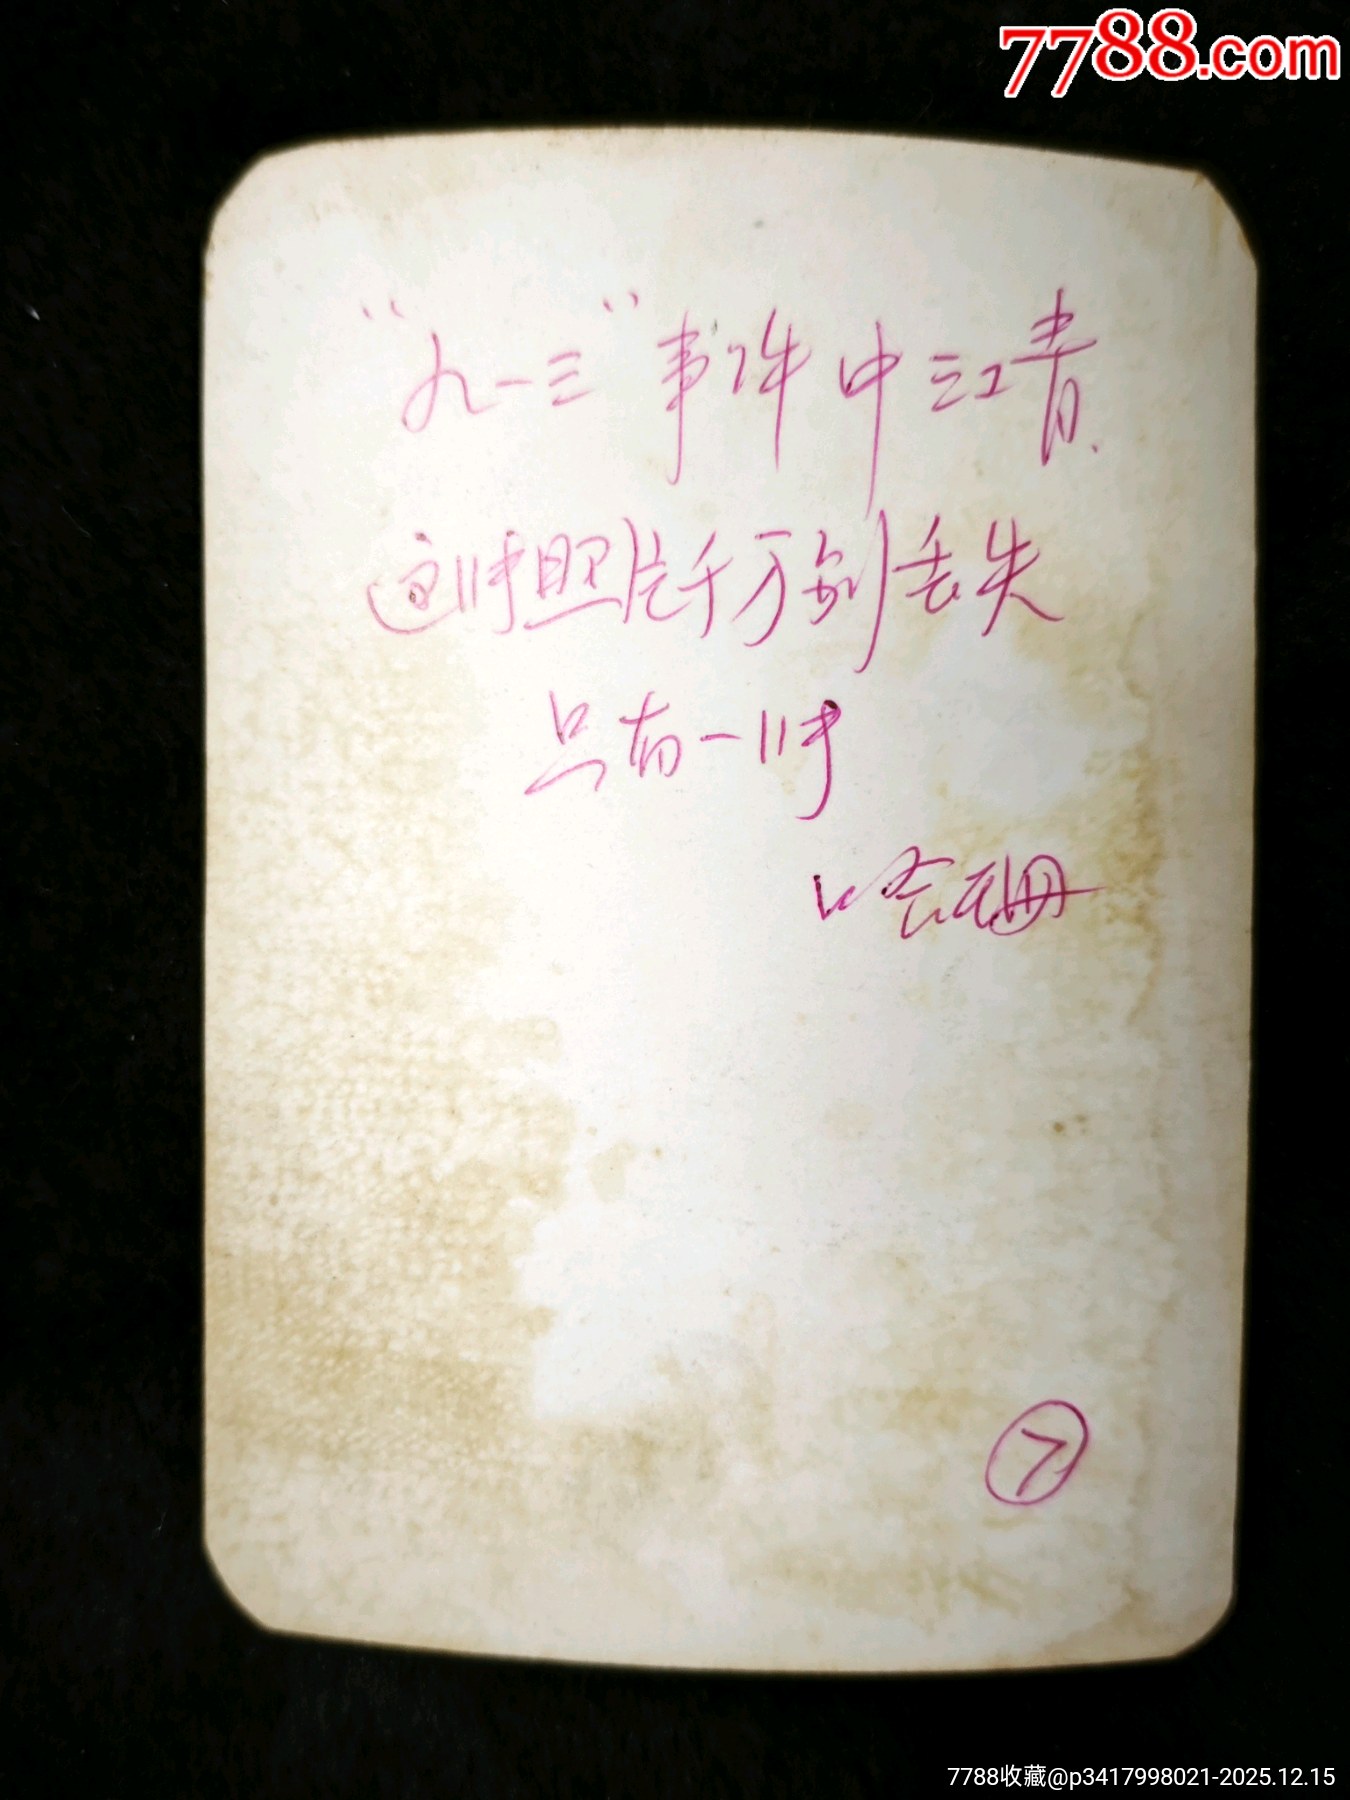 "九一三"事件中江青.
这照片千万别丢失
只有一
⑦
7788.com
7788收藏@p3417998021-2025.12.15